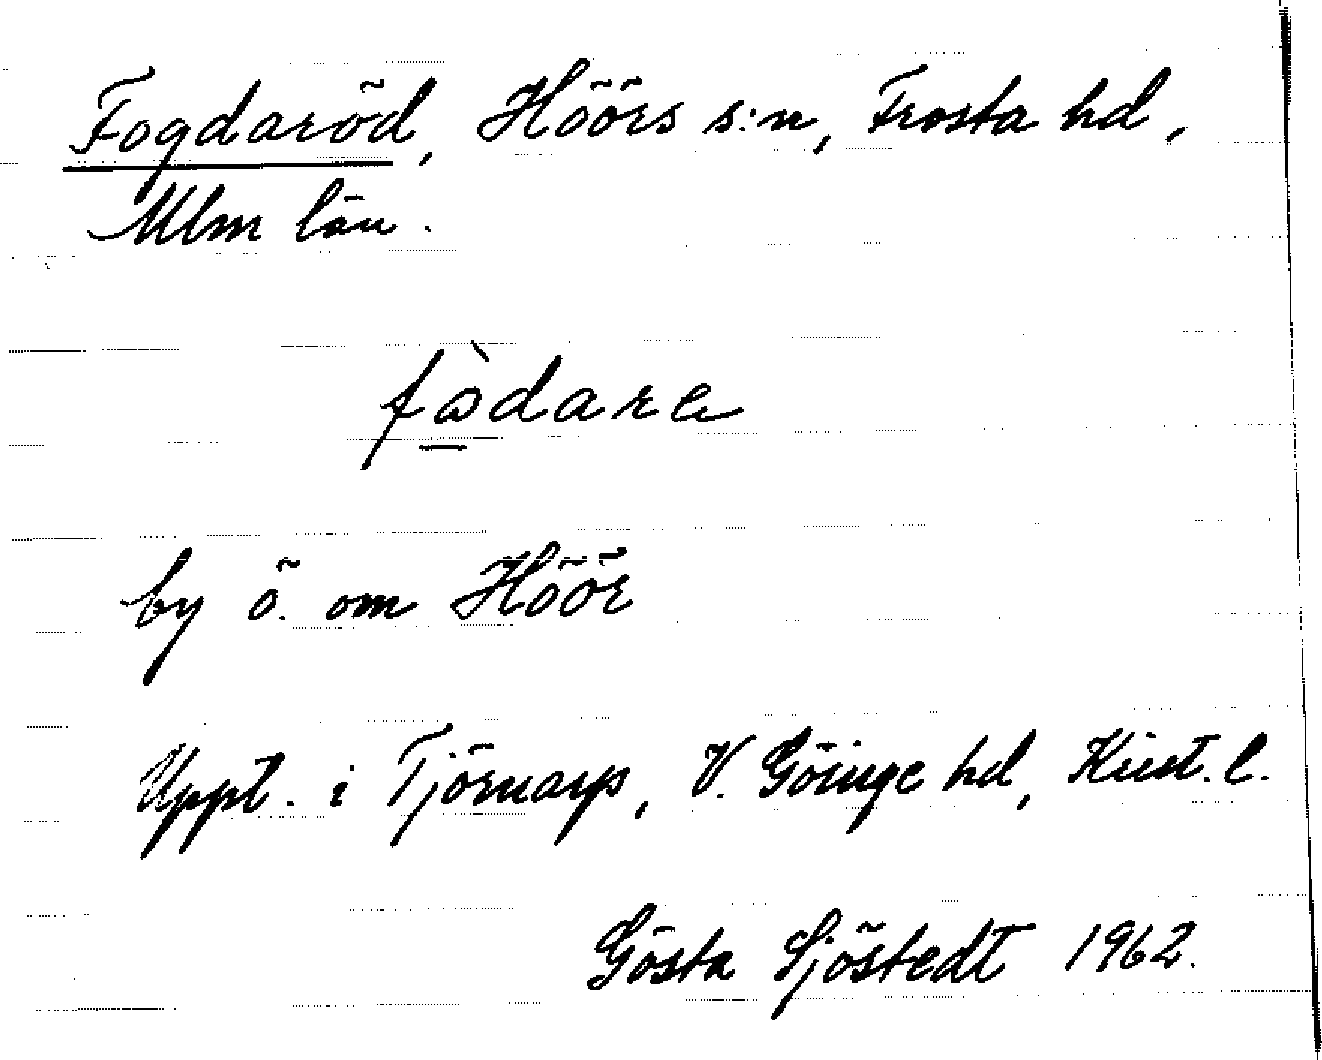 Fogdaröd, Höörs s:n, Frosta hd,
Mlm län.
by ö. om Höör
Uppt. i Tjörnarp, V. Göinge hd, Krist. l.
Gösta Sjöstedt 1962.